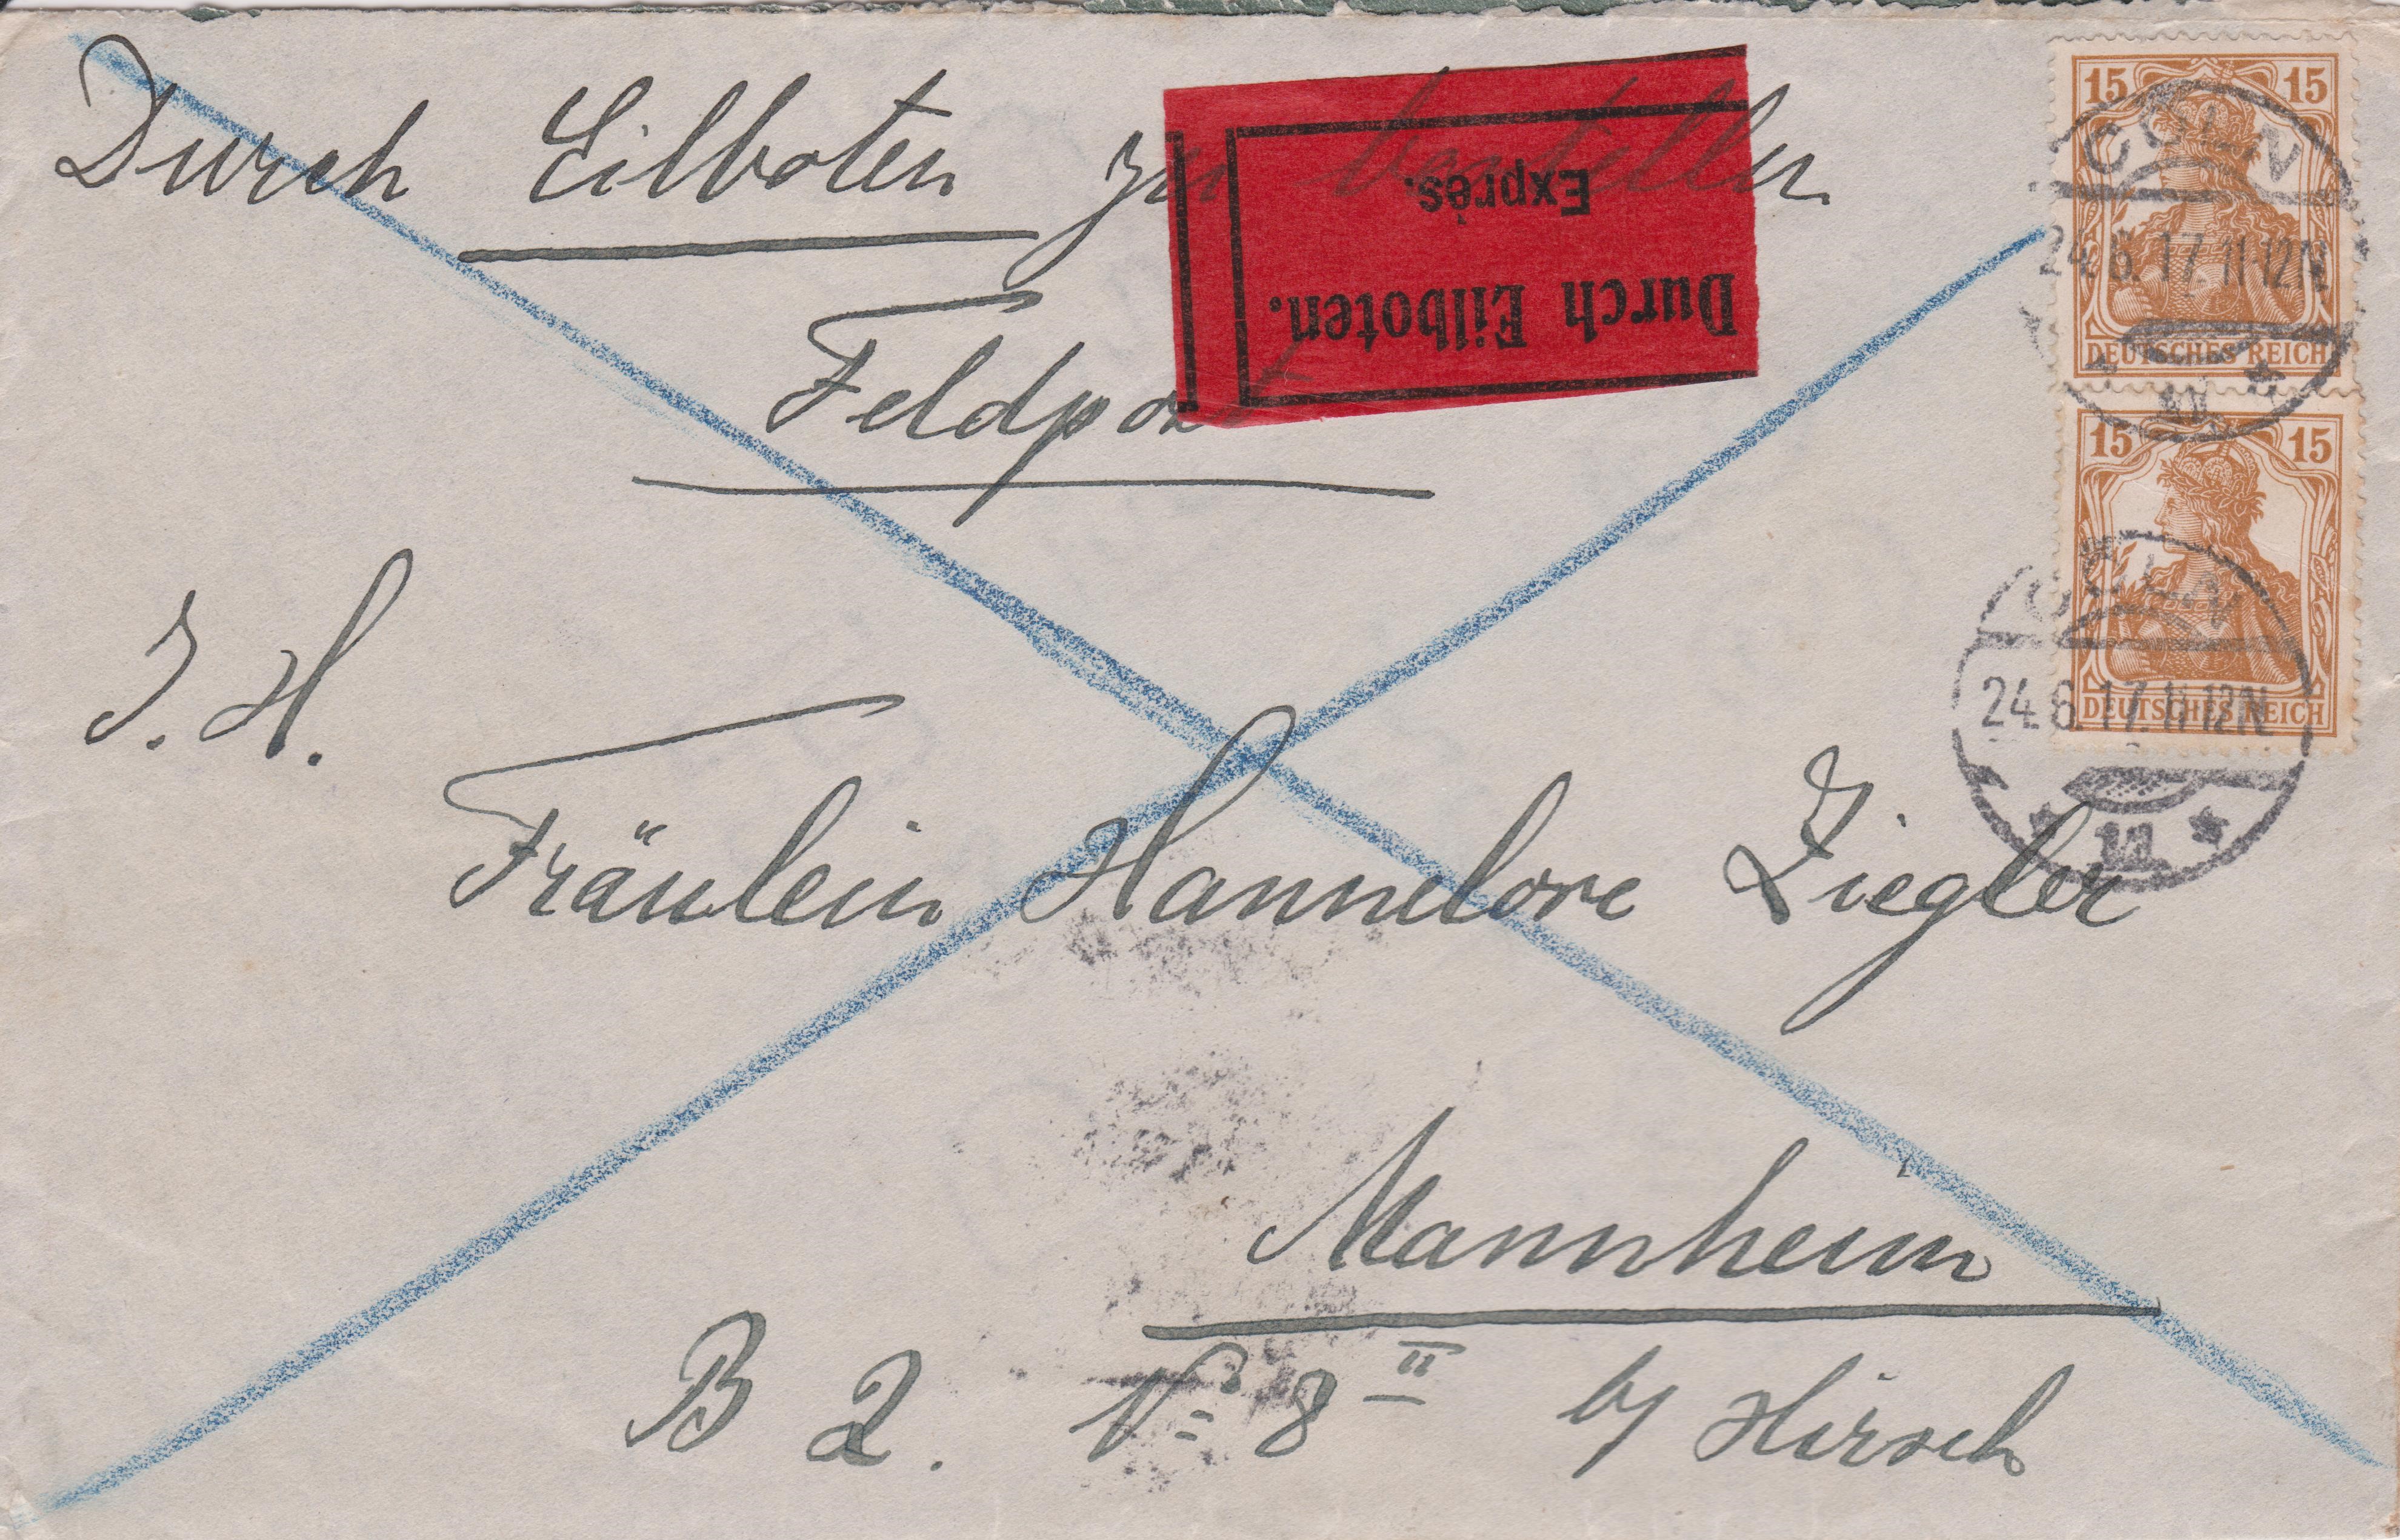 Durch Eilboten zu bestellen
Exprès.
Durch Eilboten.
Feldpost
15 15
CÖLN
24.6.17.11-12N
DEUTSCHES REICH
15 15
CÖLN
24.6.17.11-12N
DEUTSCHES REICH
* 1 *
I. H.
Fräulein Hannelore Ziegler
Mannheim
B 2. No 8 II by Hirsch